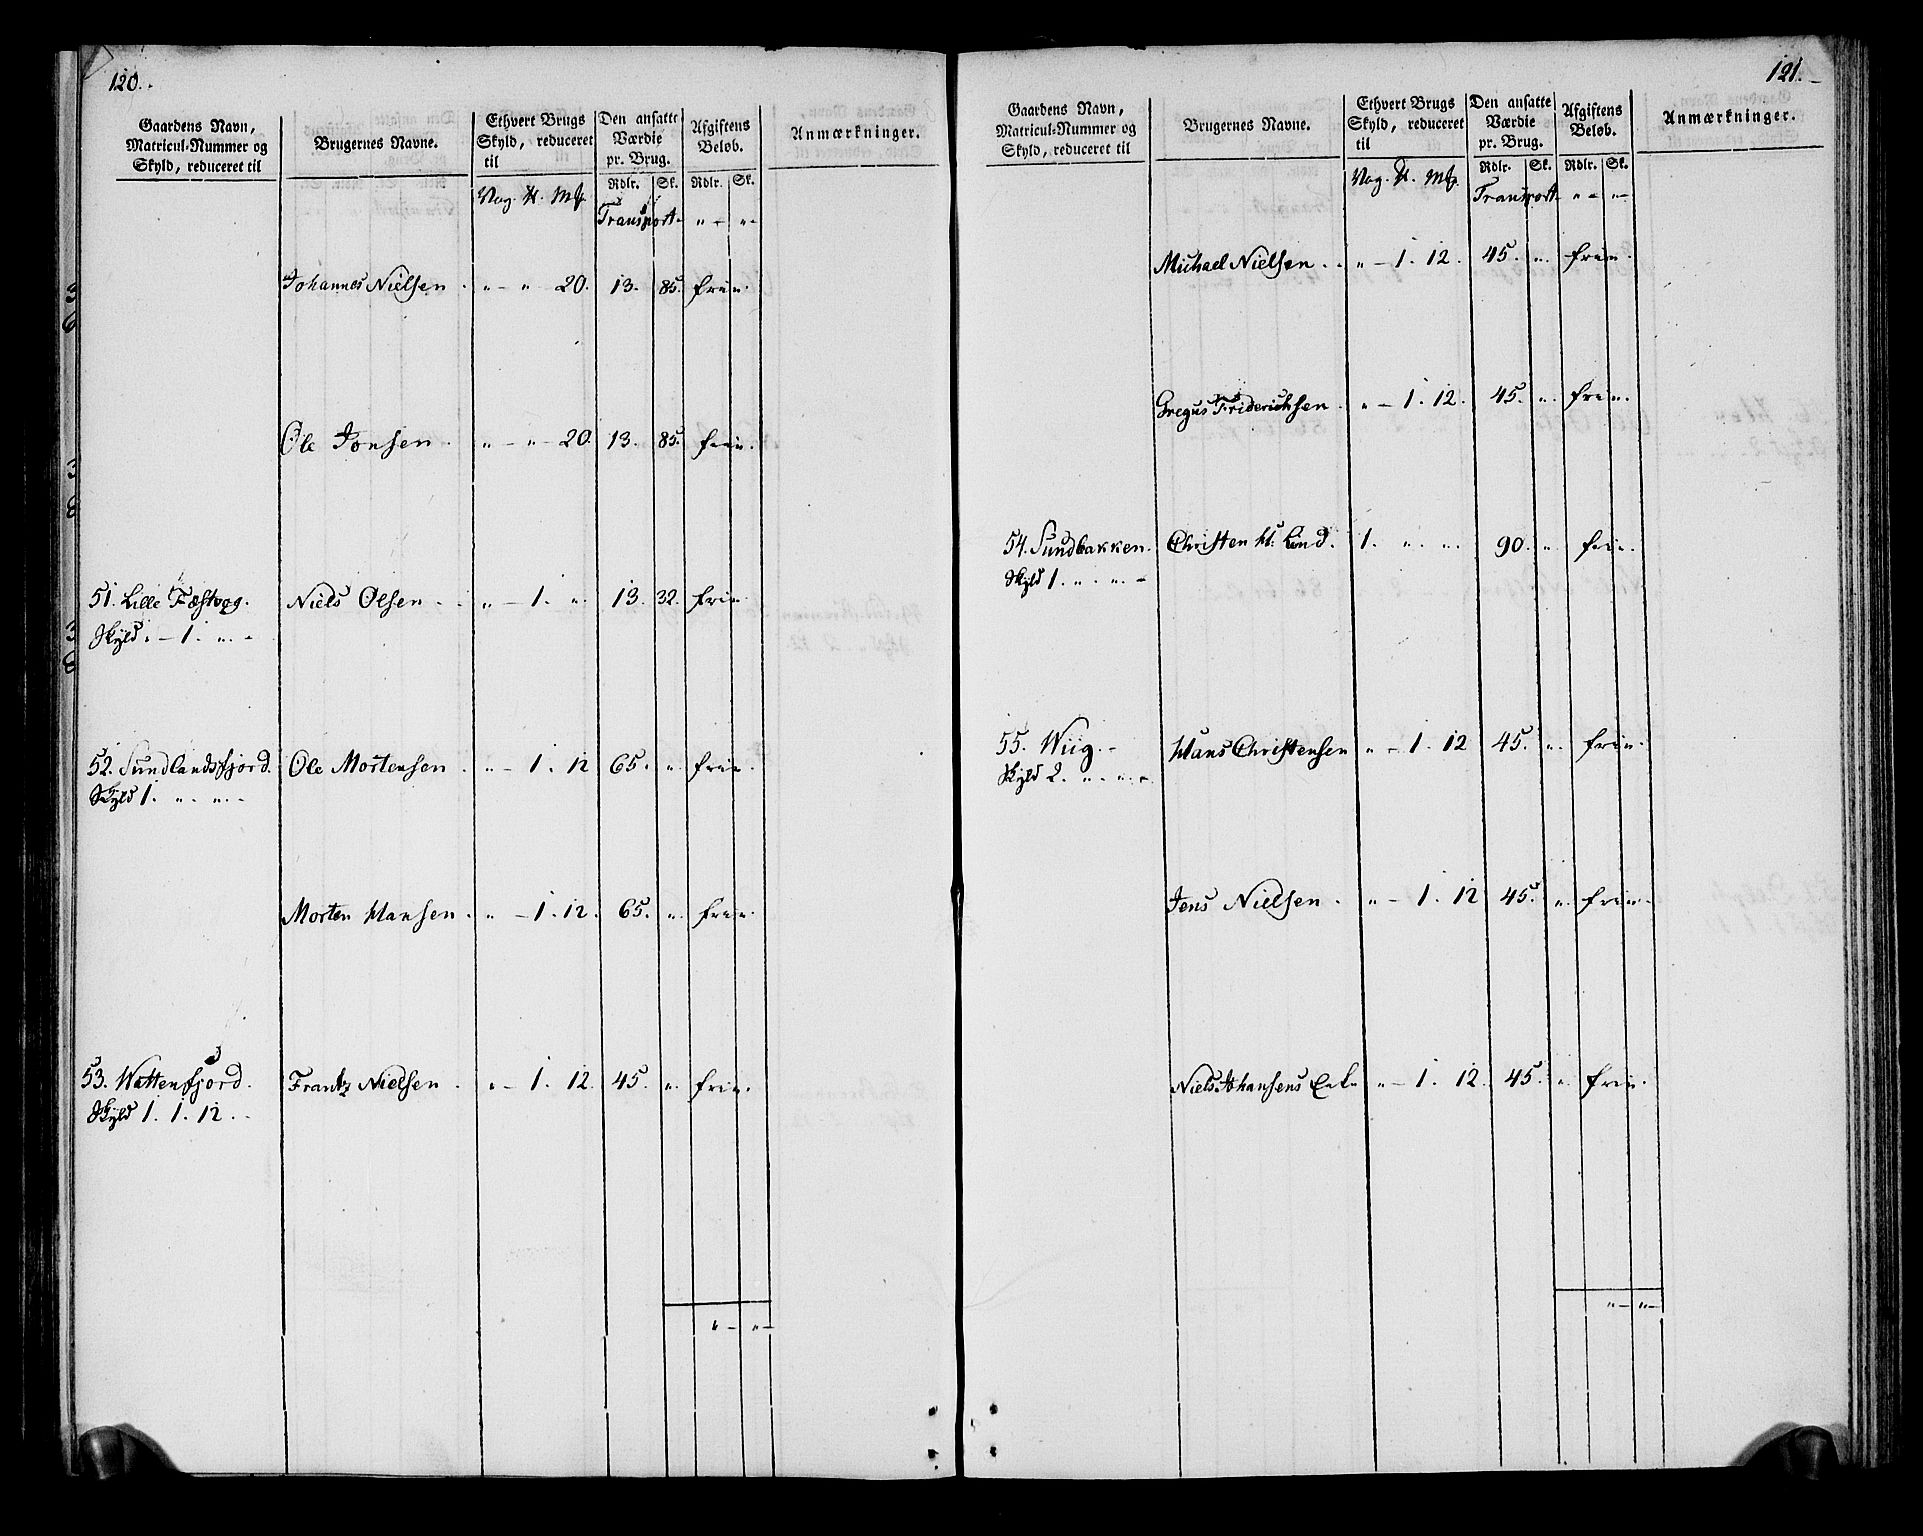 120.
Gaardens Navn, Matricul-Nummer og Skyld, reduceret til
Brugernes Navne.
Ethvert Brugs Skyld, reduceret til
Den ansatte Værdie pr. Brug.
Afgiftens Beløb.
Anmærkninger.
Rdlr. Sk. Rdlr. Sk.
Vog. ℔. Mk.
Transport. " — " —
Johannes Nielsen . " — " 20. 13. 85. frie.
Ole Jonsen . " — " — 20. 13. 85. frie.
51. Lille Fæstvog. Niels Olsen . . " — 1. " . 13. 32. frie.
Skyld . — 1. " . "
52. Sundlandsfjord. Ole Mortensen . " — 1. 12 65. " frie.
Skyld 1. " . " . "
Morten Hansen . " — 1. 12. 65. " . frie.
53. Wattenfjord. Frantz Nielsen . " — 1. 12. 45. " . frie.
Skyld 1. 1. 12. .
" — " —
121.
Gaardens Navn, Matricul-Nummer og Skyld, reduceret til
Brugernes Navne.
Ethvert Brugs Skyld, reduceret til
Den ansatte Værdie pr. Brug.
Afgiftens Beløb.
Anmærkninger.
Rdlr. Sk. Rdlr. Sk.
Vog. ℔. Mk.
Transport. " — " —
Michael Nielsen . . " — 1. 12. 45. " . frie.
Gregus Friderichsen . " — 1. 12. 45. " . frie.
54. Sundbakken. Christen H: Lind. 1. " . " . 90. " . frie.
Skyld 1. " . " . —
55. Wiig. — Hans Christensen " — 1. 12 45. " . frie.
Skyld 2. " . " . —
Jens Nielsen . " — 1. 12 45. " . frie.
Niels Johansens " — 1. 12. 45. " . frie.
" — " —